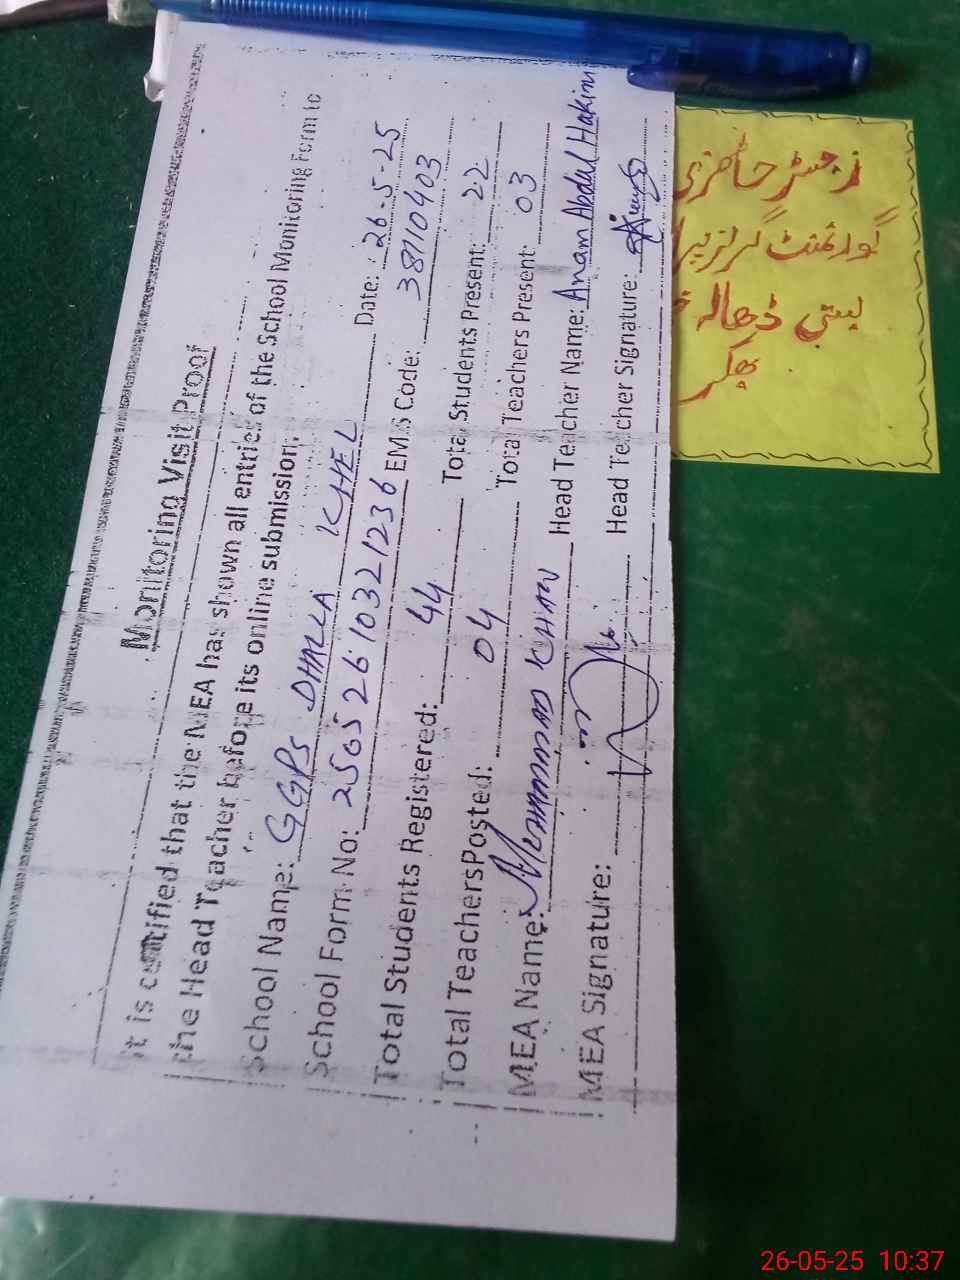 Monitoring Visit Proof
It is certified that the MEA has shown all entries of the School Monitoring Form to
the Head Teacher before its online submission.
School Name: GGPS DHALLA KHEL Date: 26-5-25
School Form No: 256526 1032 1236 EMIS Code: 38110403
Total Students Registered: 44 Total Students Present: 22
Total Teachers Posted: 04 Total Teachers Present: 03
MEA Name: MUHAMMAD KHAN Head Teacher Name: Anam Abdul Hakim
MEA Signature: Head Teacher Signature:
رجسٹر حاضری
گورنمنٹ گرلز پر
بستی ڈھالہ
بھکر
26-05-25 10:37